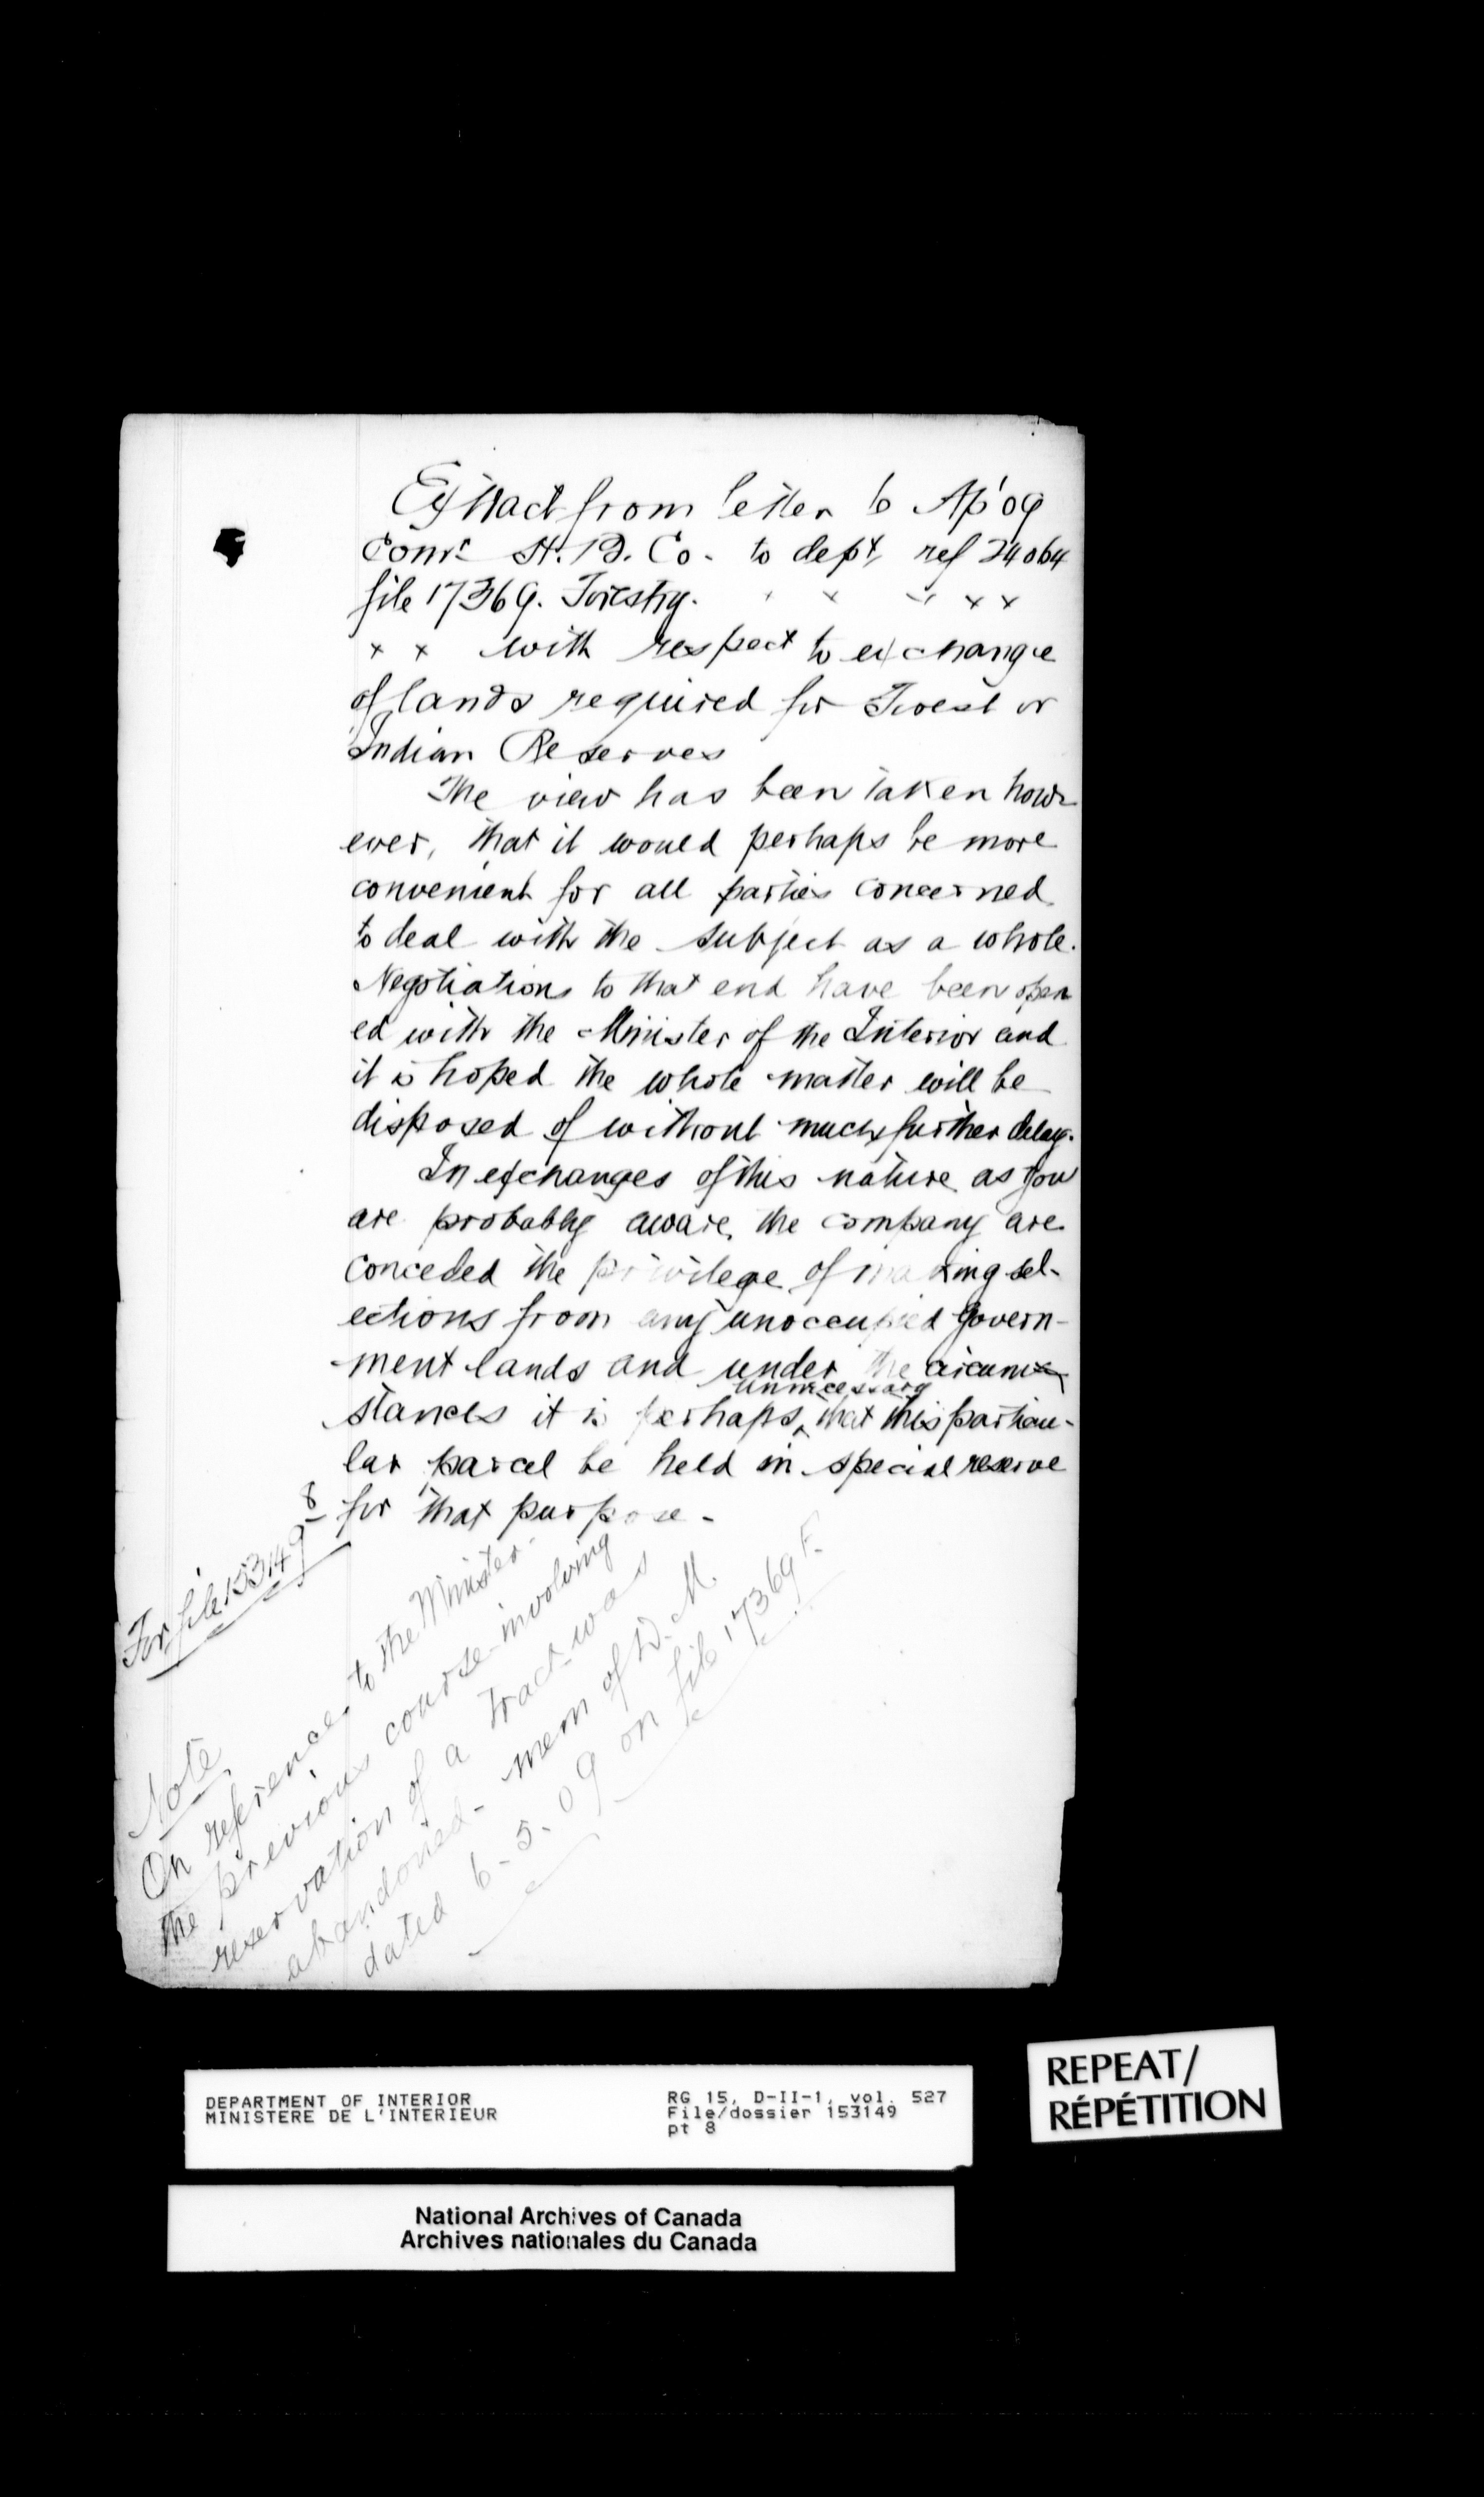 Extract from letter 6 Ap'09
Comr H. B. Co. to dept, ref 24064
file 17369. Forestry. x x x x x
x x with respect to exchange
of lands required for Forest or
Indian Reserves
The view has been taken how-
ever, that it would perhaps be more
convenient for all parties concerned
to deal with the subject as a whole.
Negotiations to that end have been open
ed with the Minister of the Interior and
it is hoped the whole matter will be
disposed of without much further delay.
In exchanges of this nature as you
are probably aware, the company are
conceded the privilege of making sel-
ections from any unoccupied Govern-
ment lands and under the circum-
unnecessary
stances it is perhaps ^ that this particu-
lar parcel be held in special reserve
for that purpose -
For file 153149 8
Note
On reference to the Minister
the previous course involving
reservation of a tract was
abandoned - mem of D. M.
dated 6-5-09 on file 17369 F.
DEPARTMENT OF INTERIOR
MINISTERE DE L'INTERIEUR
RG 15, D-II-1, vol. 527
File/dossier 153149
pt 8
REPEAT/
RÉPÉTITION
National Archives of Canada
Archives nationales du Canada